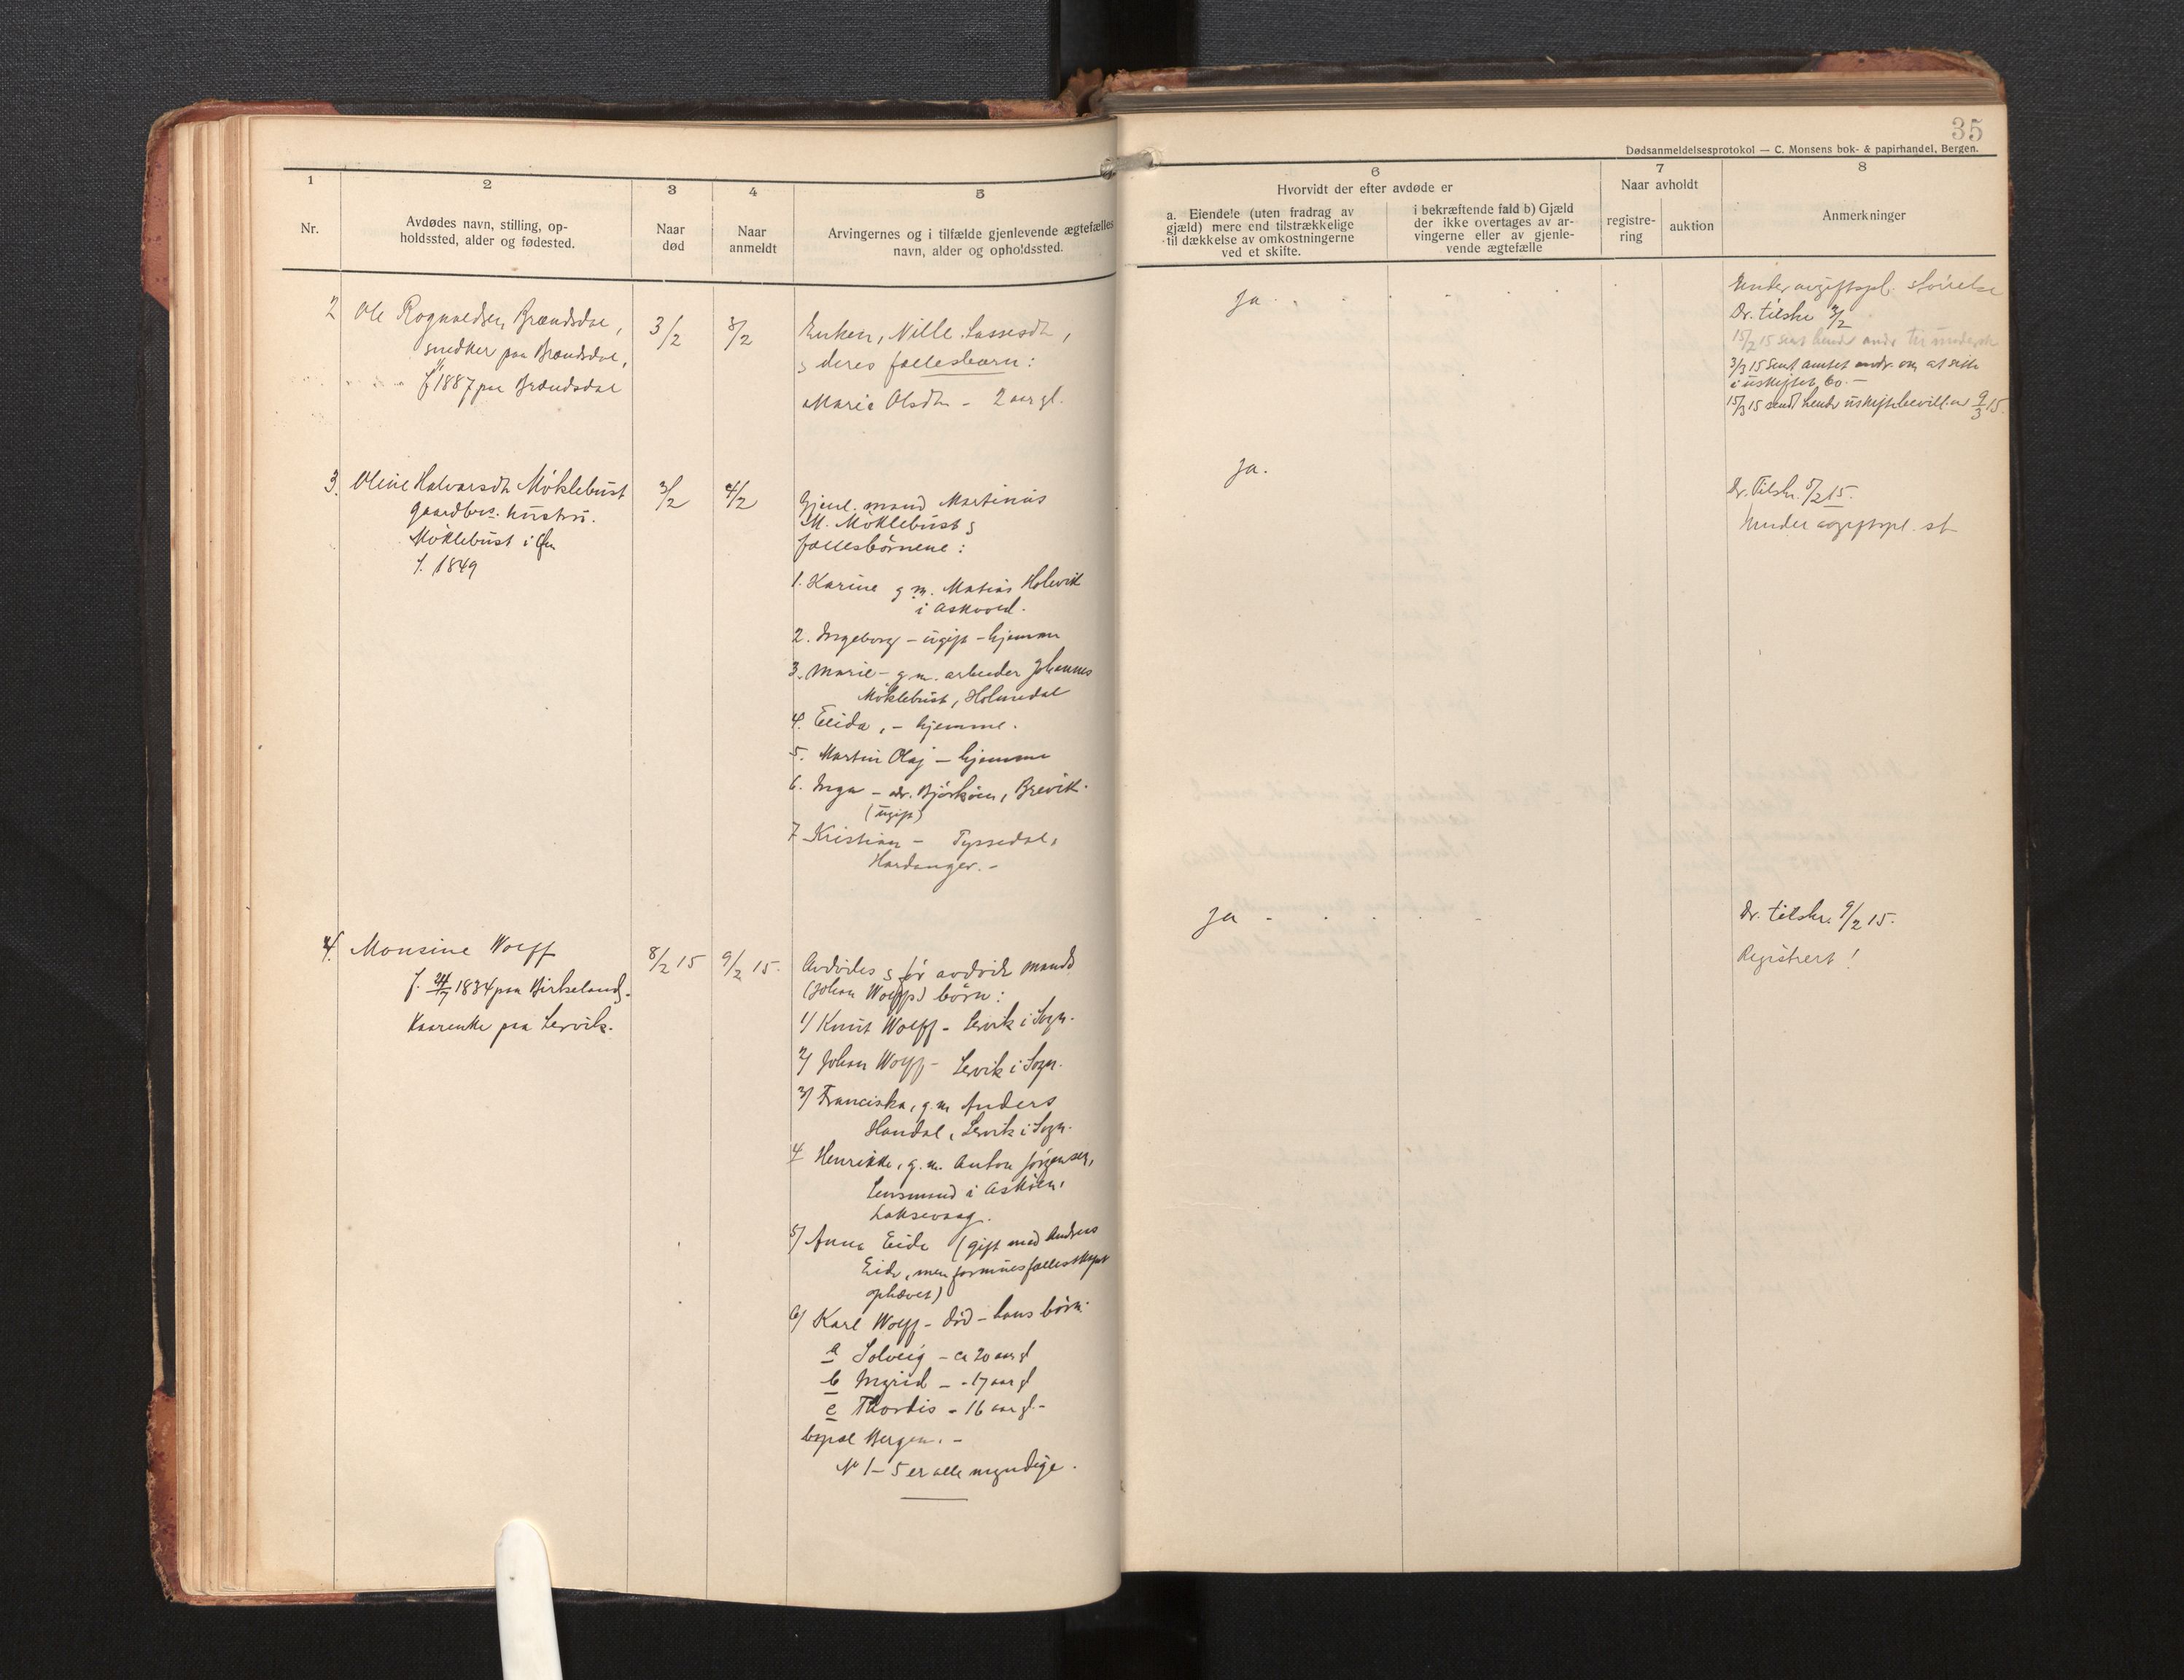 35
Dødsanmeldelsesprotokol — C. Monsens bok- & papirhandel, Bergen.
1
Nr.
2
Avdødes navn, stilling, op-
holdssted, alder og fødested.
3
Naar
død
4
Naar
anmeldt
5
Arvingernes og i tilfælde gjenlevende ægtefælles
navn, alder og opholdssted.
6
Hvorvidt der efter avdøde er
a. Eiendele (uten fradrag av
gjæld) mere end tilstrækkelige
til dækkelse av omkostningerne
ved et skifte.
i bekræftende fald b) Gjæld
der ikke overtages av ar-
vingerne eller av gjenle-
vende ægtefælle
7
Naar avholdt
registre-
ring
auktion
8
Anmerkninger
2
Ole Rognaldsen Brændsdal,
snedker paa Brændsdal,
f 1887 paa Brændsdal
3/2
8/2
Enken, Nille Lassesdtr,
& deres fællesbarn:
Marie Olsdtr - 2 aar gl.
Ja.
Under avgiftspl. størrelse
Dr. tilskr 8/2
15/2 15 sent hende andr til undersk
3/3 15 sent amtet andr. om at sitte
i uskiftet bo. -
15/3 15 sendt hende uskiftebevill. av 9/3 15.
3.
Oline Halvarsdtr Möklebust
gaardbr. hustru.
Möklebust i
f. 1849
3/2
4/2
Gjenl. mand Martinus
M. Möklebust &
fællesbörnene:
1. Karine g. m. Matias Holevik
i Askvoll.
2. Ingeborg - ugift - hjemme
3. Marie - g. m. arbeider Johannes
Möklebust, Holmedal
4. Elida, - hjemme.
5. Martin Olaf - hjemme
6. Inga - adr. Björköen, Brevik.
(ugift)
7 Kristian - Tyssedal,
Hardanger. -
Ja.
Dr. Tilskr. 5/2 15.
Under avgiftspl. st
4.
Monsine Wolff
f. 24/7 1834 paa Birkeland,
Kaarenke paa Lervik.
8/2 15
9/2 15.
Avdödes & för avdöde mands
(Johan Wolffs) börn:
1/ Knut Wolff - Lervik i Sogn.
2/ Johan Wolff - Lervik i Sogn.
3/ Franciska, g. m. Anders
Handal, Lervik i Sogn.
4 Henrikke, g. m. Anton Jörgensen,
Lensmand i Asköen,
Laksevaag.
5/ Anna Eide (gift med Andreas
Eide, men formuesfællesskapet
ophævet)
6/ Karl Wolff - död - hans börn:
a Solveig - ca 20 aar gl
b Ingrid - - 17 aar gl
c Thordis - 16 aar gl. -
bopæl Bergen. -
No 1 - 5 er alle myndige.
Ja
Dr. tilskr. 9/2 15.
Registrert!